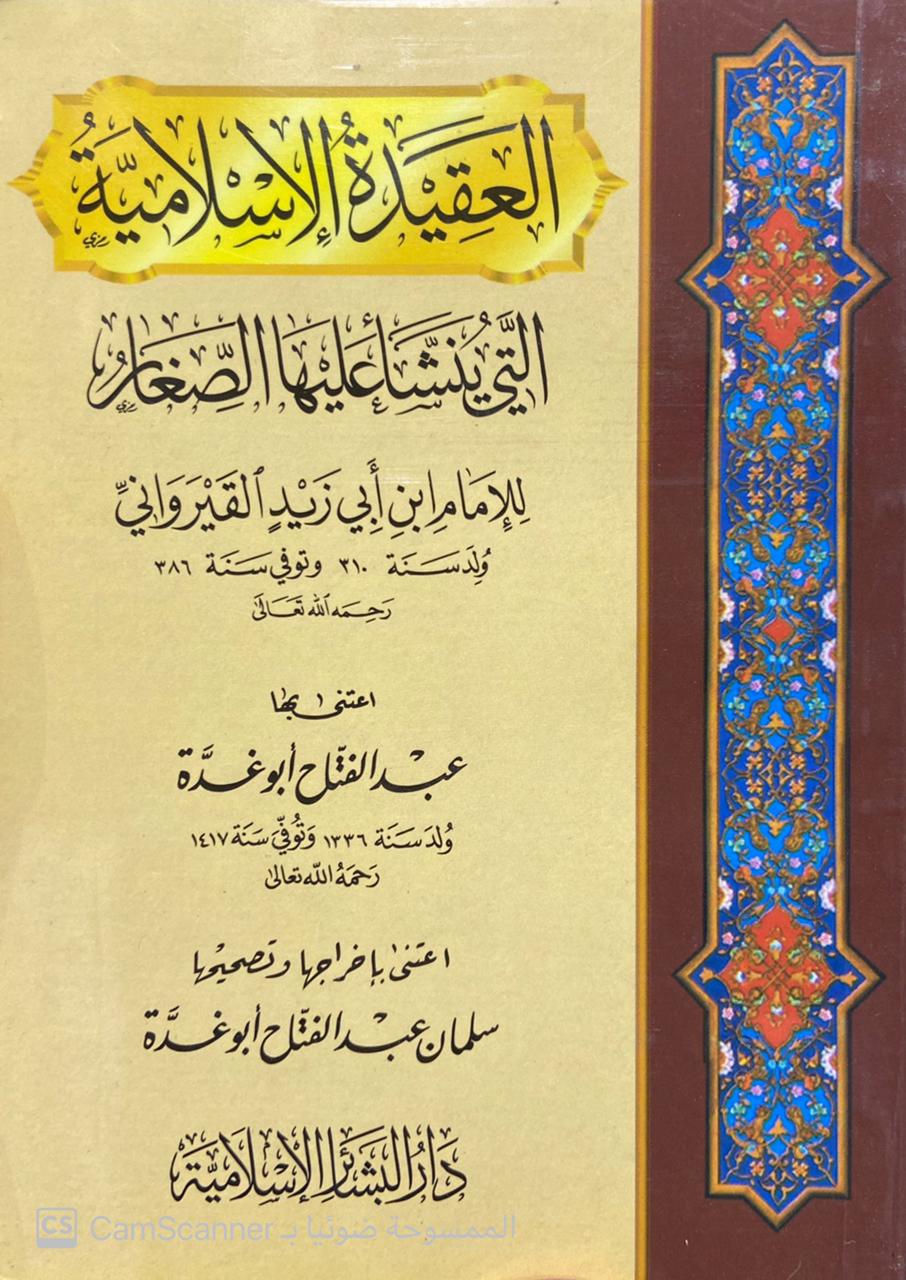 العَقِيْدَةُ الإِسْلَامِيَّةُ
الَّتِي يُنَشَّأُ عَلَيْهَا الصِّغَارُ
لِلإِمَامِ ابْنِ أَبِي زَيْدٍ القَيْرَوَانِيِّ
وُلِدَ سَنَة ٣١٠ وتوفي سَنَة ٣٨٦
رَحِمَه الله تَعَالَى
اعتنى بها
عبْد الفتّاح أبو غدَّة
وُلدَ سَنَة ١٣٣٦ وَتُوفِّيَ سَنَة ١٤١٧
رَحمَهُ اللّه تعالى
اعتنى بإخراجها وتصحيحها
سلمان عبْد الفتّاح أبو غدَّة
دَارُ البَشَائِر الإِسْلَامِيَّة
CS CamScanner الممسوحة ضوئيا بـ